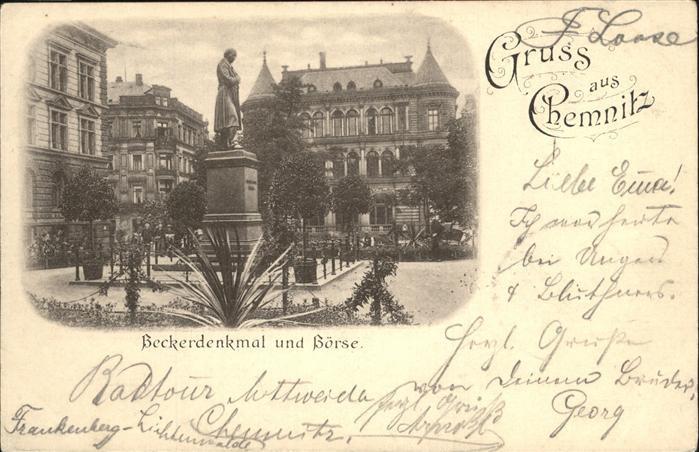 F. Loose
Gruss
aus
Chemnitz
Liebe Ema!
Ich war heute
bei Ungers
& Bluthners.
Herzl. Grüße
von Deinem Brüder,
Georg
Beckerdenkmal und Börse.
Radtour Mittweida
Frankenberg-Lichtenwalde
Chemnitz.
herzl. Gruß